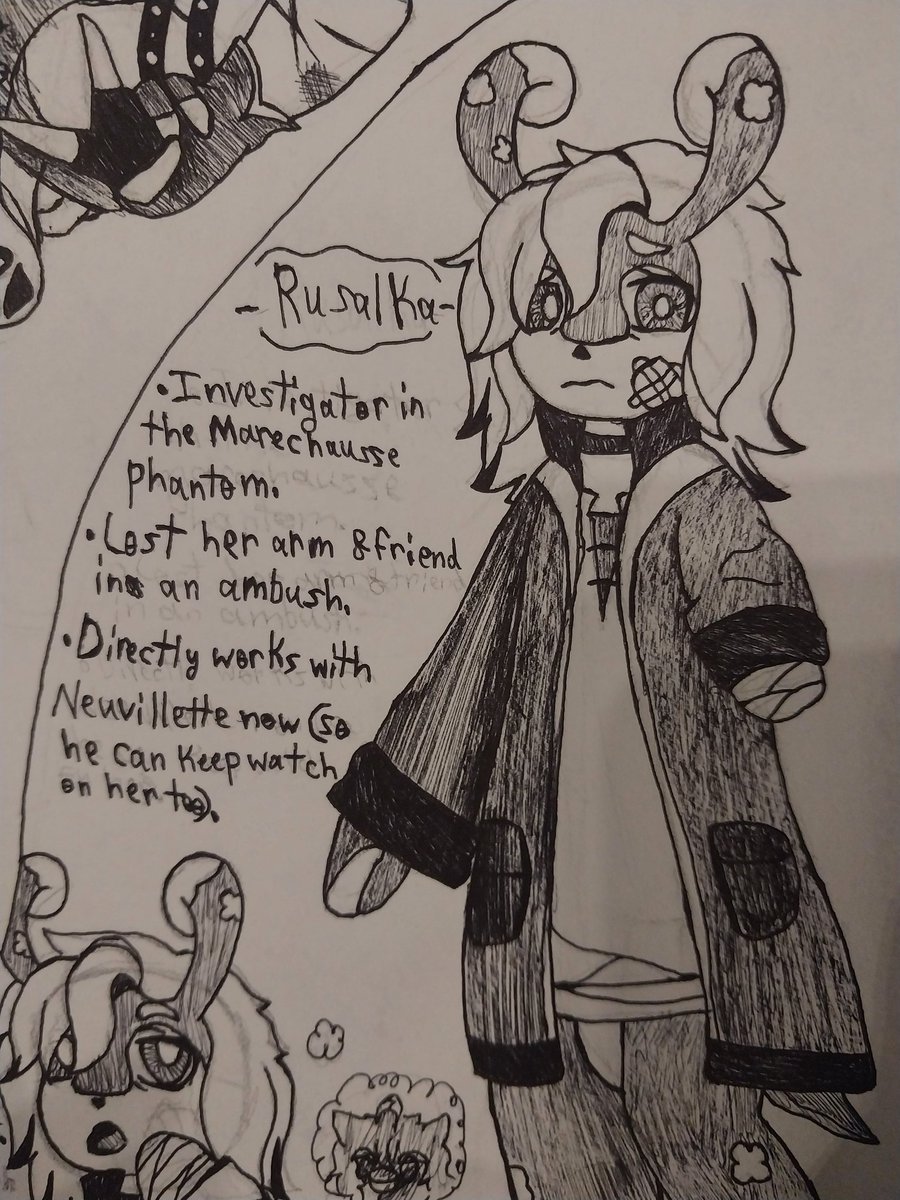 - Rusalka -
• Investigator in
the Marechausse
phantom.
• Lost her arm & friend
in an ambush.
• Directly works with
Neuvillette now (so
he can keep watch
on her too).